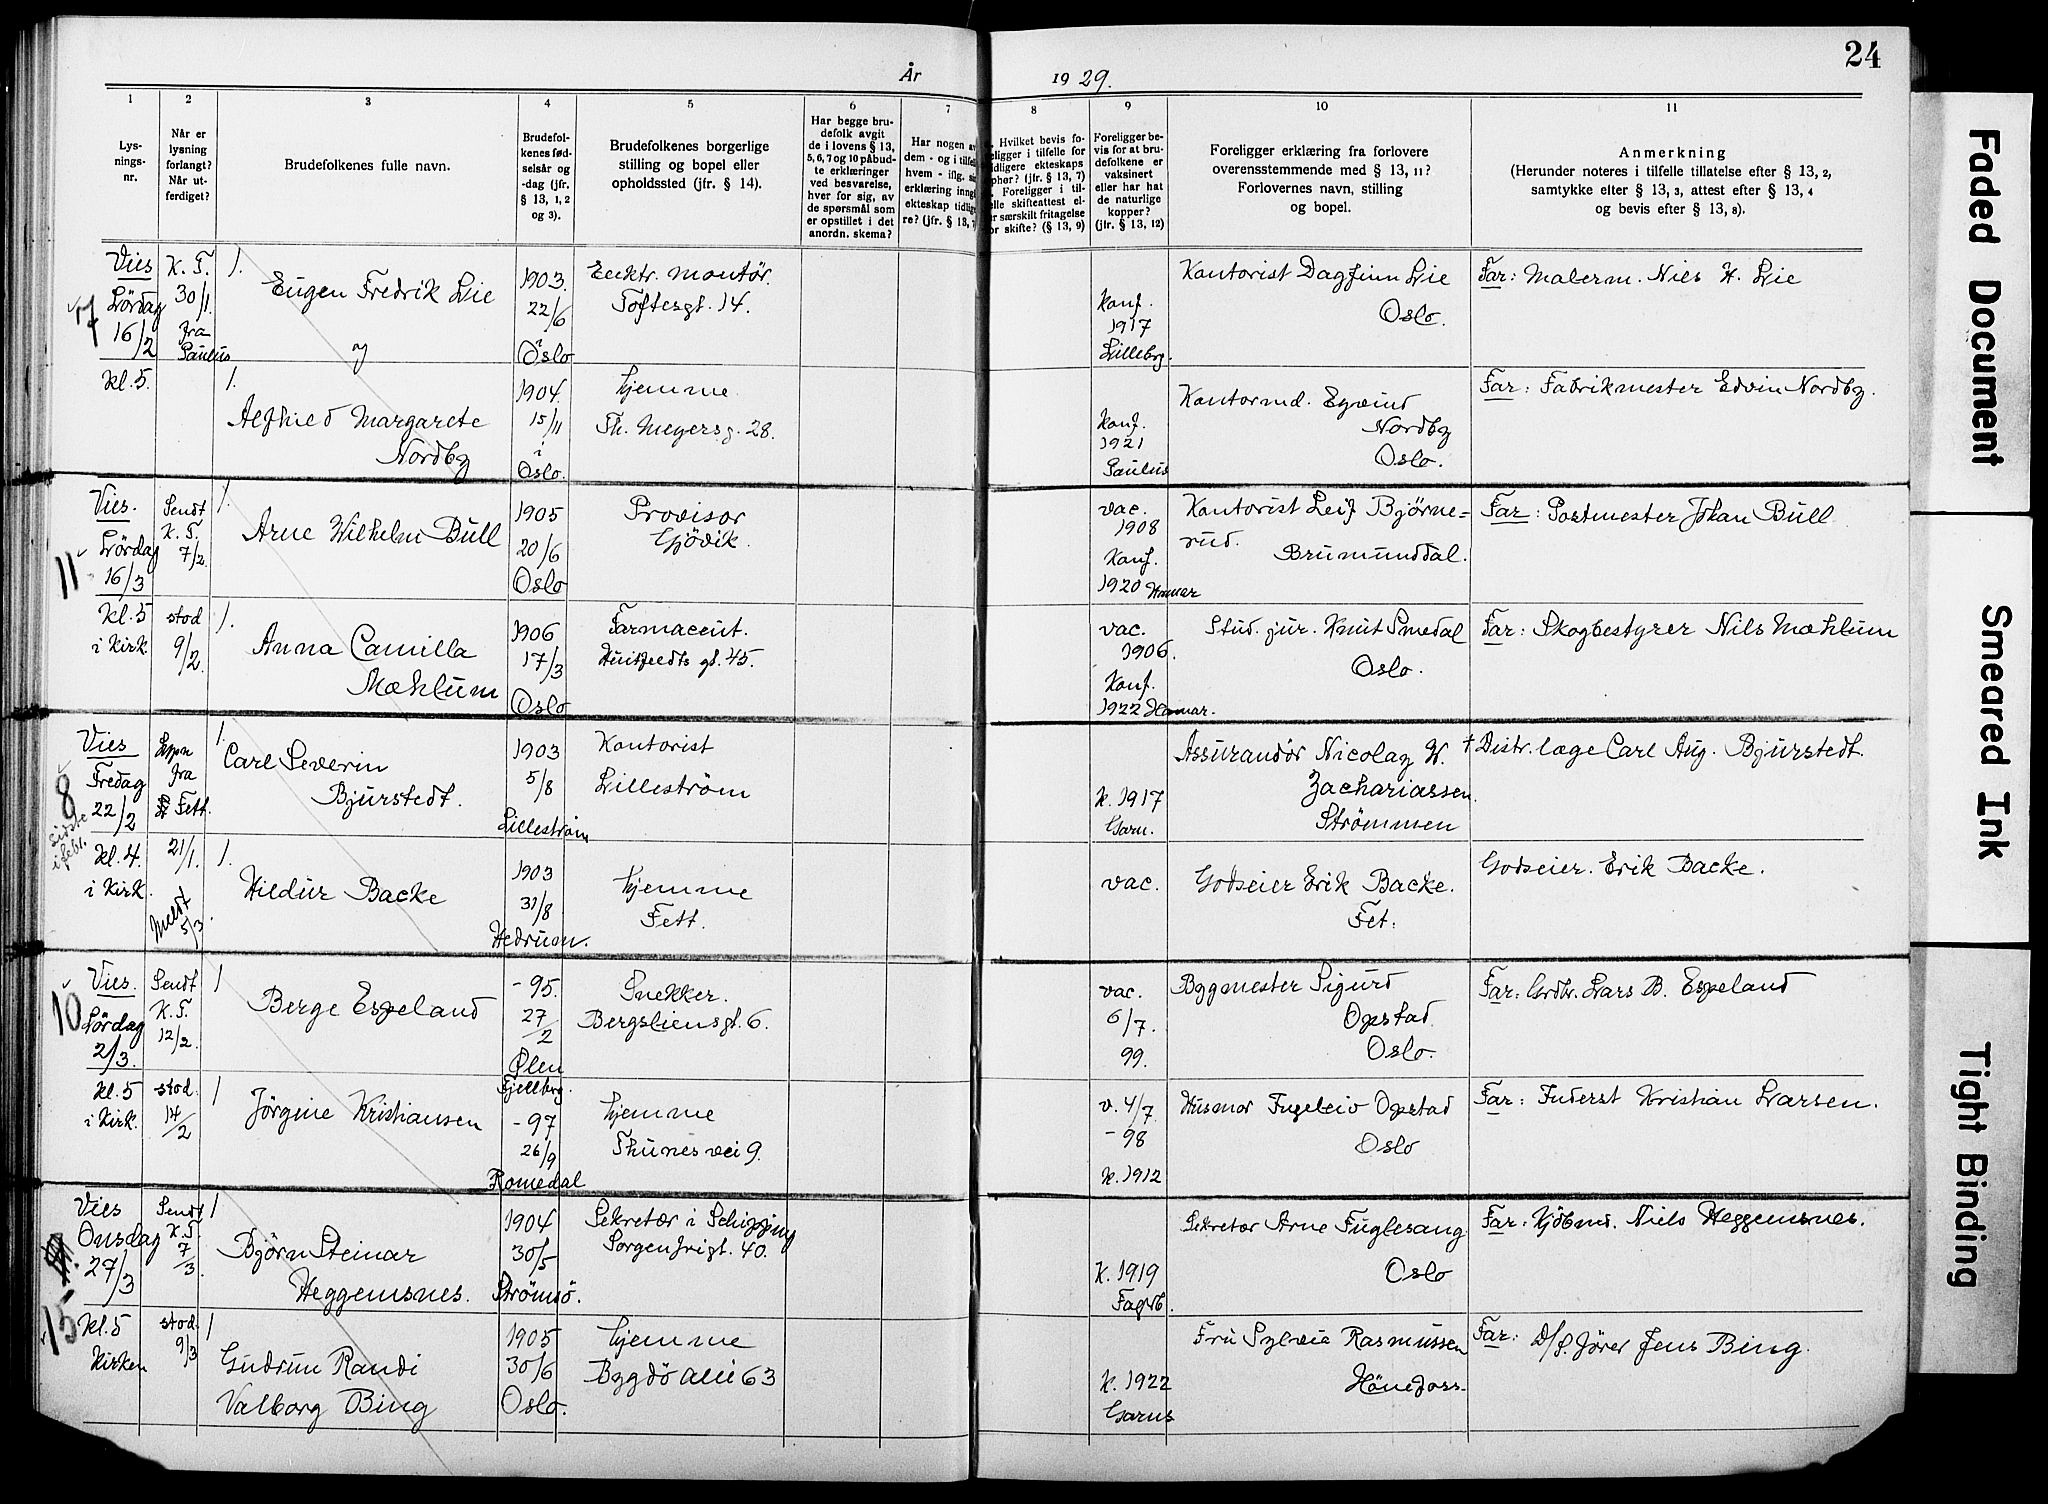 24
År 1929.
1
Lys-
nings-
nr.
2
Når er
lysning
forlangt?
Når ut-
ferdiget?
3
Brudefolkenes fulle navn.
4
Brudefol-
kenes fød-
selsår og
-dag (jfr.
§ 13, 1, 2
og 3).
5
Brudefolkenes borgerlige
stilling og bopel eller
opholdssted (jfr. § 14).
6
Har begge bru-
defolk avgit
de i lovens § 13,
5, 6, 7 og 10 påbud-
te erklæringer
ved besvarelse,
hver for sig, av
de spørsmål som
er opstillet i det
anordn. skema?
7
Har nogen av
dem - og i tilfelle
hvem - iflg. sin
erklæring inngått
ekteskap tidlige-
re? (jfr. § 13, 7
8
Hvilket bevis fo-
religger i tilfelle for
tidligere ekteskaps
ophør? (jfr. § 13, 7)
Foreligger i til-
felle skifteattest el-
er særskilt fritagelse
for skifte? (§ 13, 9)
9
Foreligger be-
vis for at bru-
defolkene er
vaksinert
eller har hat
de naturlige
kopper?
(jfr. § 13, 12)
10
Foreligger erklæring fra forlovere
overensstemmende med § 13, 11?
Forlovernes navn, stilling
og bopel.
11
Anmerkning
(Herunder noteres i tilfelle tillatelse efter § 13, 2,
samtykke efter § 13, 3, attest efter § 13, 4
og bevis efter § 13, 8).
7
Vies
Lördag
16/2
kl. 5.
K. T.
30/1
fra
Paulus
1.
Eugen Fredrik Lie
1903.
22/6
i
Oslo
Elektr. montör.
Toftesgt. 14.
Konf.
1917
Lilleborg.
Kontorist Dagfinn Lie
Oslo.
Far: Malerm. Nils H. Lie
1.
Alfhild Margarete
Nordby
1904.
15/11
i
Oslo.
hjemme
Th. Meyersg. 28.
Konf.
1921
Paulus
Kontormd. Eyvind
Nordby
Oslo.
Far: Fabrikmester Edvin Nordby.
11
Vies.
Lördag
16/3
Kl. 5
i Kirk.
Sendt
K. T.
7/2.
stod
9/2.
1.
Arne Wilhelm Bull
1905
20/6
Oslo
Provisor
Gjövik.
vac.
1908
Konf.
1920 Hamar
Kontorist Leif Bjørne=
rud.
Brumunddal.
Far: Postmester Johan Bull
1.
Anna Camilla
Mæhlum
1906
17/3
Oslo
Farmaceut.
Huitfeldts gt. 45.
vac.
1906.
Konf.
1922 Hamar.
Stud. jur. Knut Smedal
Oslo.
Far: Skogbestyrer Nils Mæhlum
8
Sidste
i febr.
Vies
Fredag
22/2
kl. 4.
i Kirk.
Lysn
fra
Fett.
21/1.
Meldt
5/3.
1.
Carl Severin
Bjurstedt.
1903
5/8
Lillestrøm
Kontorist
Lilleström
K. 1917
Garn.
Assurandør Nicolay W.
Zachariassen.
Strömmen
† Distr. læge Carl Aug. Bjurstedt.
1.
Hildur Backe
1903
31/8
Hedrum.
hjemme
Fett.
vac.
Godseier Erik Backe.
Fet.
Godseier. Erik Backe.
10
Vies.
Lördag
2/3.
kl. 5
i Kirk.
Sendt
K. T.
12/2.
stod.
14/2
1
Berge Espeland
- 95.
27/2
Ølen
Fjellberg.
Snekker.
Bergsliensgt. 6.
vac.
6/7.
99.
Byggmester Sigurd
Opstad.
Oslo.
Far: Grdbr. Lars B. Espeland
1
Jörgine Kristiansen
- 97
26/9
Romedal
hjemme
Thunes vei 9.
v. 4/7
- 98
K. 1912
Husmor Ingeleiv Opstad
Oslo
Far: Inderst Kristian Larsen.
15
Vies
Onsdag
27/3
Kl. 5
Kirken
Sendt
K. T.
7/3.
stod.
9/3
1
Björn Steinar
Heggemsnes.
1904
30/5
Strömsö.
Sekretær i Schipping
Sorgenfrigt. 40.
K. 1919
Fagerb.
Sekretær Arne Fuglesang
Oslo
Far: Kjöbmd. Niels Heggemsnes.
1
Gudrun Randi
Valborg Bing
1905
30/6
Oslo.
hjemme
Bygdö alle 63
K. 1922
Garns
Fru Sylvia Rasmussen
Hönefoss.
Far: D/f. Jörer Jens Bing.
Faded Document
Smeared Ink
Tight Binding